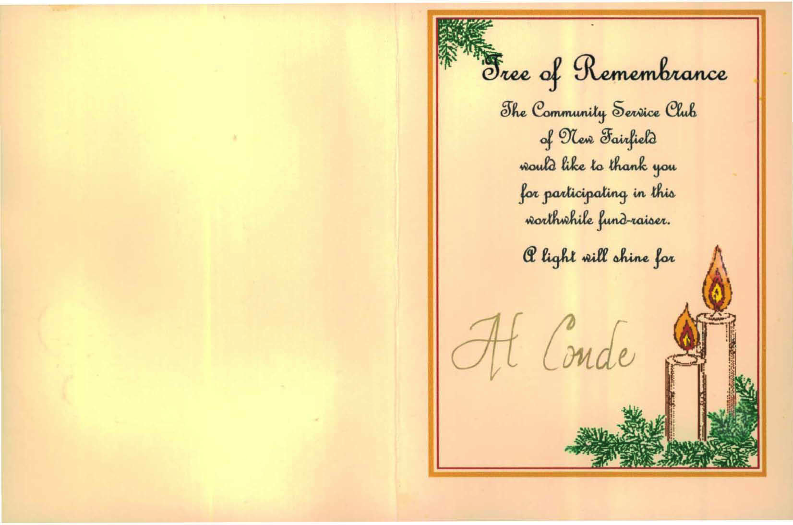 Tree of Remembrance
The Community Service Club
of New Fairfield
would like to thank you
for participating in this
worthwhile fund-raiser.
A light will shine for
Al Conde